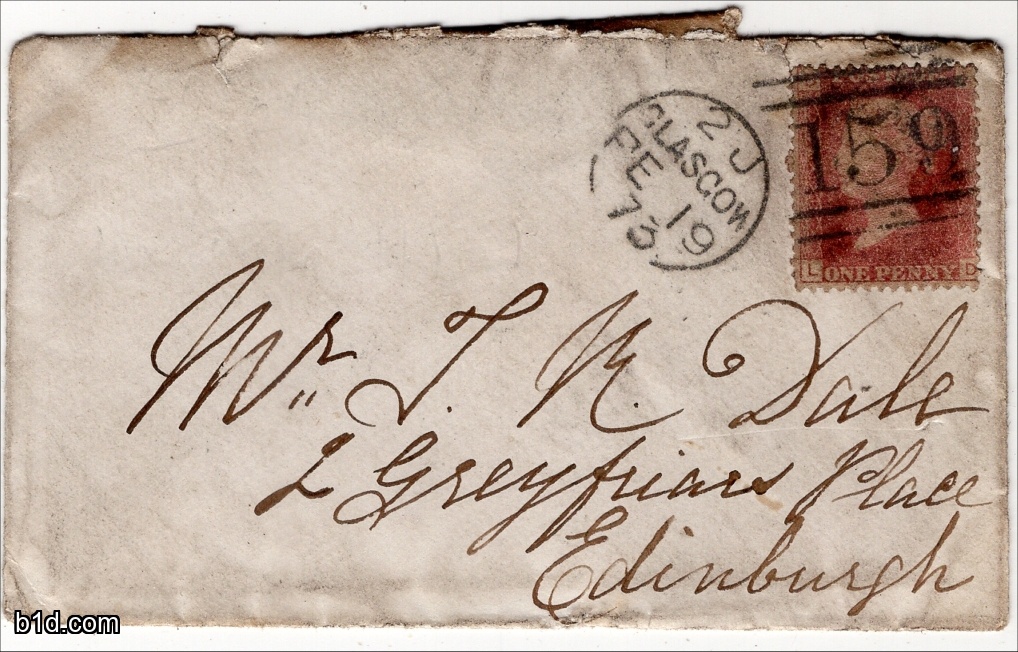 2 J
GLASGOW
FE 19
73
159
L ONE PENNY D
Mr. T. N. Dale
2 Greyfriars Place
Edinburgh
b1d.com